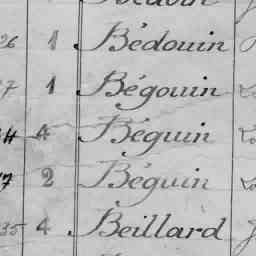 26 1 Bédouin
7 1 Bégouin
4 Béguin
7 2 Béguin
35 4 Beillard